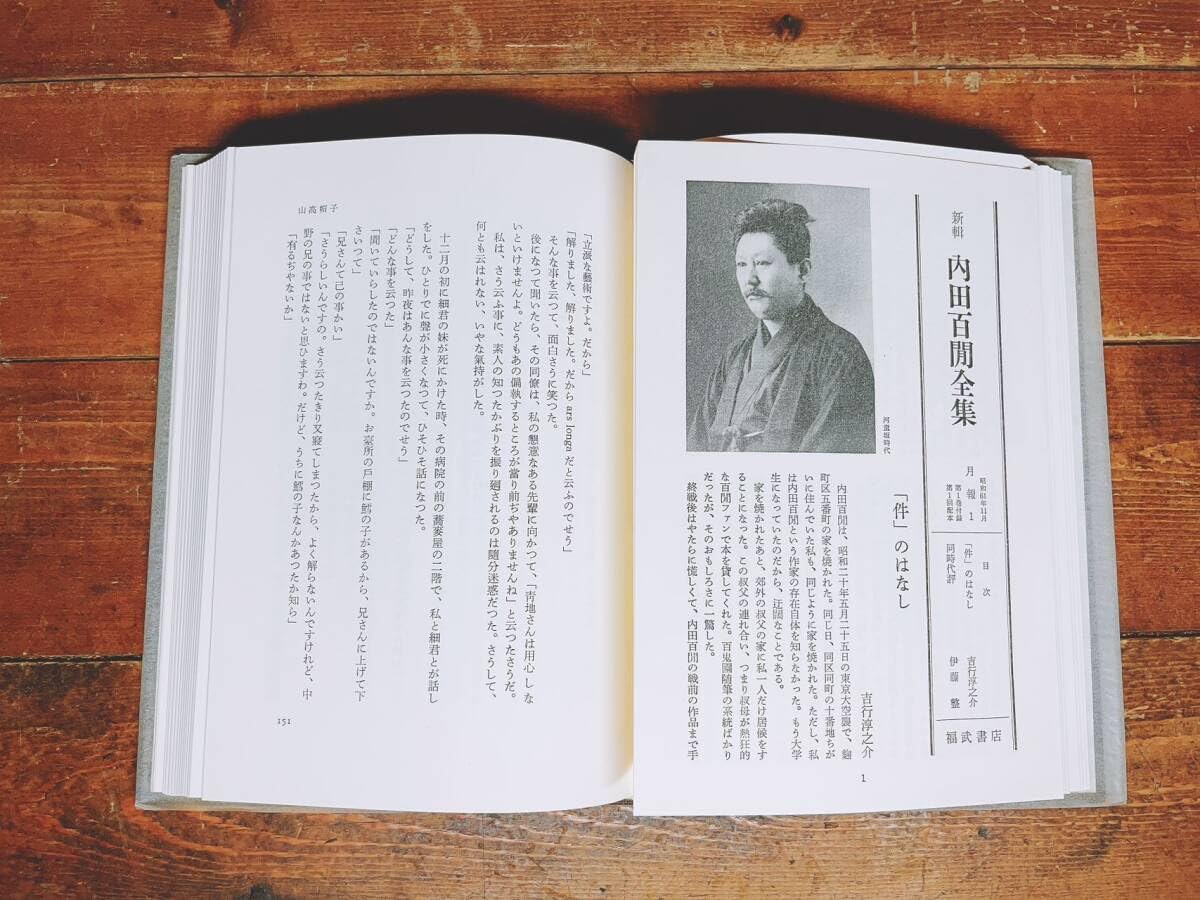 新輯 内田百閒全集
月報1
昭和61年11月
第1巻付録
第1回配本
目次
「件」のはなし 吉行淳之介
同時代評 伊藤整
福武書店
河盪坂時代
「件」のはなし
吉行淳之介
内田百閒は、昭和二十年五月二十五日の東京大空襲で、麹
町区五番町の家を焼かれた。同じ日、同区同町の十番地ちが
いに住んでいた私も、同じように家を焼かれた。ただし、私
は内田百閒という作家の存在自体を知らなかった。もう大学
生になっていたのだから、迂闊なことである。
家を焼かれたあと、郊外の叔父の家に私一人だけ居候をす
ることになった。この叔父の連れ合い、つまり叔母が熱狂的
な百閒ファンで本を貸してくれた。百鬼園随筆の系統ばかり
だったが、そのおもしろさに一驚した。
終戦後はやたらに慌しくて、内田百閒の戦前の作品まで手
1
山高帽子
「立派な藝術ですよ。だから」
「解りました、解りました。だから ars longa だと云ふのでせう」
そんな事を云つて、面白さうに笑つた。
後になつて聞いたら、その同僚は、私の懇意なある先輩に向かつて、「青地さんは用心しな
いといけませんよ。どうもあの偏執するところが当り前ぢやありませんね」と云つたさうだ。
私は、さう云ふ事に、素人の知つたかぶりを振り廻されるのは随分迷惑だつた。さうして、
何とも云はれない、いやな氣持がした。
十二月の初に細君の妹が死にかけた時、その病院の前の蕎麥屋の二階で、私と細君とが話し
をした。ひとりでに聲が小さくなつて、ひそひそ話になつた。
「どうして、昨夜はあんな事を云つたのでせう」
「どんな事を云つた」
「聞いていらしたのではないんですか。お臺所の戸棚に鱈の子があるから、兄さんに上げて下
さいつて」
「兄さんて己の事かい」
「さうらしいんですの。さう云つたきり又寢てしまつたから、よく解らないんですけれど、中
野の兄の事ではないと思ひますわ。だけど、うちに鱈の子なんかあつたか知ら」
「有るぢやないか」
151